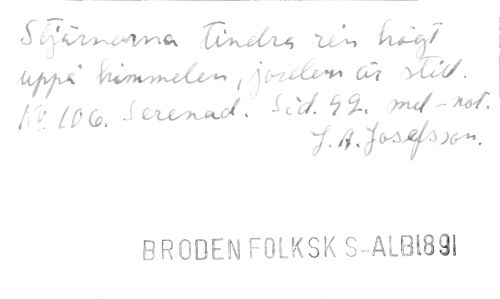 Stjärnorna tindra ren högt
uppå himmelen, jorden är still.
No 106. Serenad. Sid. 99. med not.
J. A. Josefsson.
BRODEN FOLKSK S-ALB1891